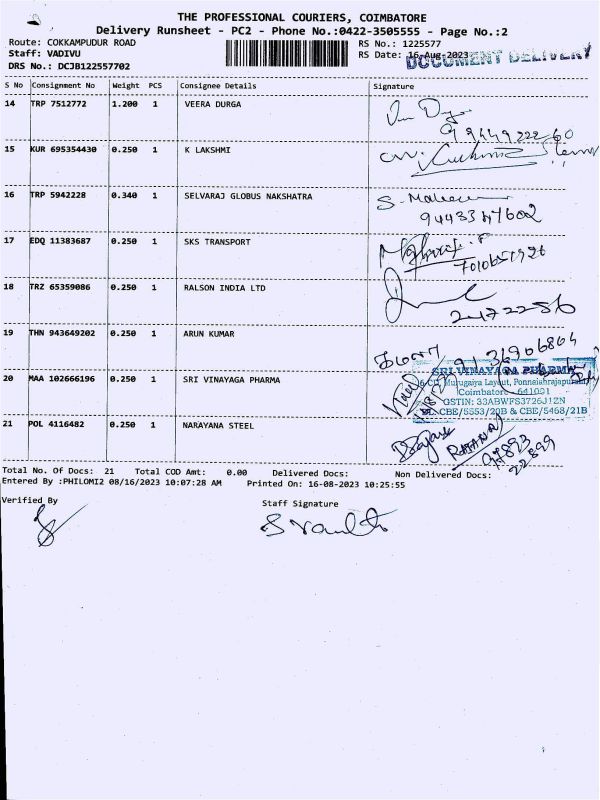 THE PROFESSIONAL COURIERS, COIMBATORE
Delivery Runsheet - PC2 - Phone No.:0422-3505555 - Page No.:2
Route: COKKAMPUDUR ROAD
RS No.: 1225577
Staff: VADIVU
RS Date: 16-Aug-2023
DOCUMENT DELIVERY
DRS No.: DCJB122557702
S No Consignment No Weight PCS Consignee Details Signature
14 TRP 7512772 1.200 1 VEERA DURGA
15 KUR 695354430 0.250 1 K LAKSHMI
16 TRP 5942228 0.340 1 SELVARAJ GLOBUS NAKSHATRA
17 EDQ 11383687 0.250 1 SKS TRANSPORT
18 TRZ 65359086 0.250 1 RALSON INDIA LTD
19 THN 943649202 0.250 1 ARUN KUMAR
20 MAA 102666196 0.250 1 SRI VINAYAGA PHARMA
SRI VINAYAGA PHARMA
Murugaiya Layout, Ponnaiahrajapuram
Coimbatore - 641001
GSTIN: 33ABWFS3726J1ZN
CBE/5553/20B & CBE/5468/21B
21 POL 4116482 0.250 1 NARAYANA STEEL
Total No. Of Docs: 21 Total COD Amt: 0.00 Delivered Docs: Non Delivered Docs:
Entered By :PHILOMI2 08/16/2023 10:07:28 AM Printed On: 16-08-2023 10:25:55
Verified By
Staff Signature